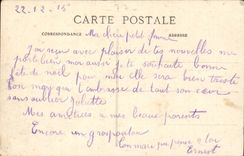 22-12-15
CARTE POSTALE
CORRESPONDANCE Ma chère petite femme ADRESSE
J'ai reçu avec plaisir de tes nouvelles
porte bien moi aussi je te souhaite bonne
fête de noël pour moi elle sera bien triste
ton mary que t'embrasse de tout son cœur
sans oublier Juliette
Mes amitiés a mes beaux parents
Encore un gros poutou
Ton mari qui pense a toi
Ernest